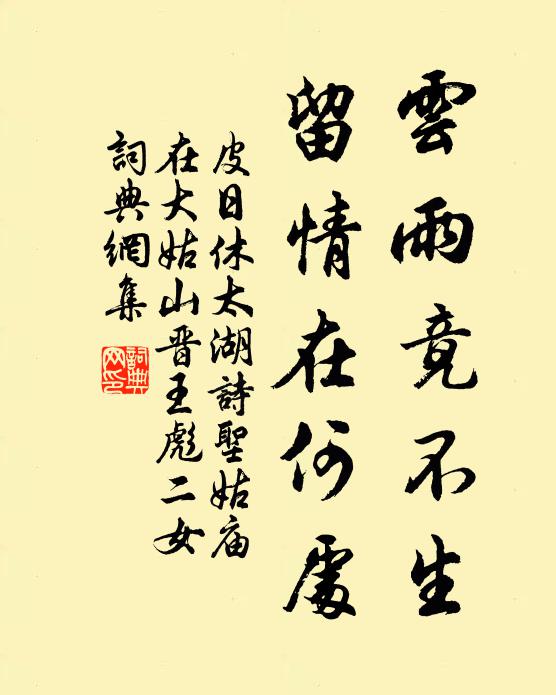 雲雨竟不生
留情在何處
皮日休太湖詩聖姑庙
在大姑山晋王彪二女
詞典網集
詞典網印